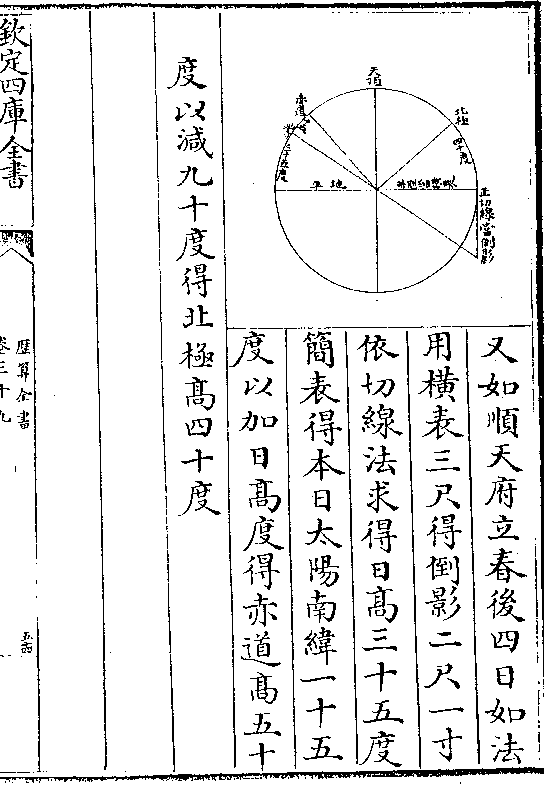 又如順天府立春後四日如法
用橫表三尺得倒影二尺一寸
依切線法求得日髙三十五度
簡表得本日太陽南緯一十五
度以加日髙度得赤道髙五十
度以減九十度得北極髙四十度
天頂
北極
四十度
正切線當倒影
地平
欽定四庫全書
歴算全書
卷三十九